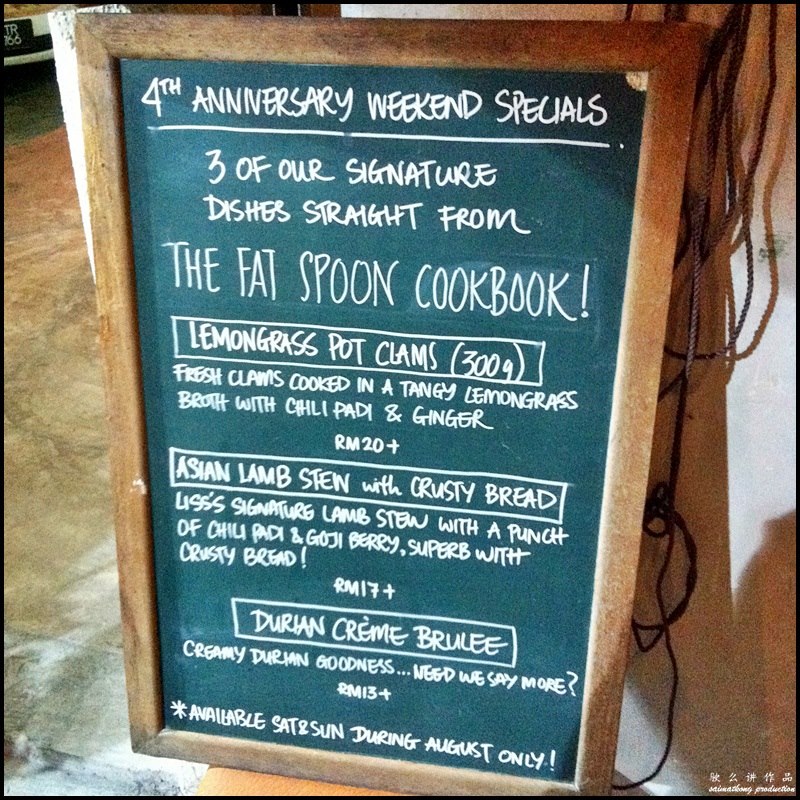 TR
766
4TH ANNIVERSARY WEEKEND SPECIALS
3 OF OUR SIGNATURE
DISHES STRAIGHT FROM
THE FAT SPOON COOKBOOK!
LEMONGRASS POT CLAMS (300g)
FRESH CLAMS COOKED IN A TANGY LEMONGRASS
BROTH WITH CHILI PADI & GINGER
RM20+
ASIAN LAMB STEW with CRUSTY BREAD
LISS'S SIGNATURE LAMB STEW WITH A PUNCH
OF CHILI PADI & GOJI BERRY, SUPERB WITH
CRUSTY BREAD!
RM17+
DURIAN CRÈME BRULEE
CREAMY DURIAN GOODNESS... NEED WE SAY MORE?
RM13+
*AVAILABLE SAT & SUN DURING AUGUST ONLY!
作品
saimatkong production